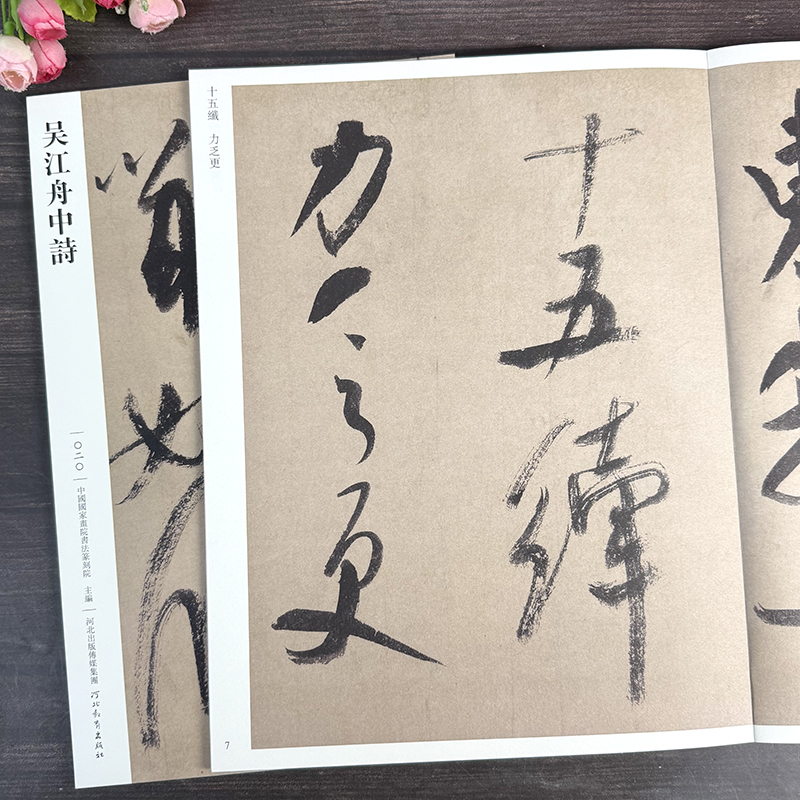 吴江舟中詩
〇二〇
中國國家畫院書法篆刻院 主編
河北出版傳媒集團
河北教育出版社
十五纖 力乏更
十五縴
力乏更
7